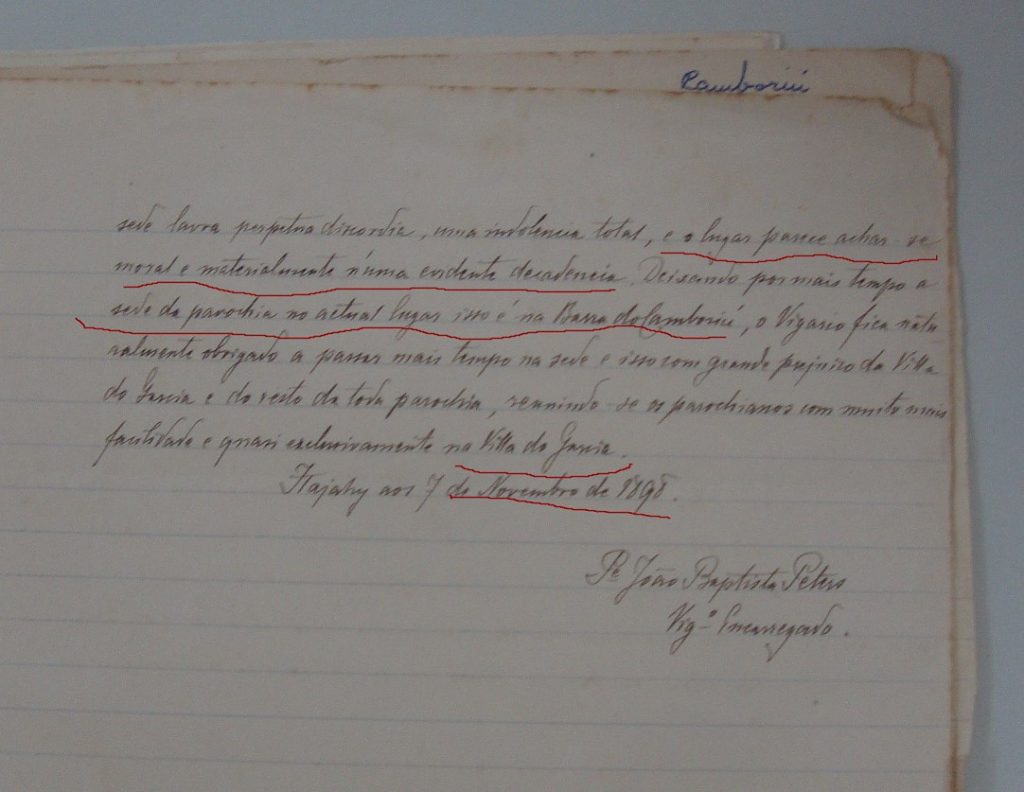 Camboriú
sede lavra perpetua discordia, uma indolencia total, e o lugar parece achar-se
moral e materialmente n'uma evidente decadencia. Deixando por mais tempo a
sede da parochia no actual lugar isso é na Barra do Camboriú, o Vigario fica natu
ralmente obrigado a passar mais tempo na sede e isso com grande prejuizo da Villa
do Garcia e do resto da toda parochia, reunindo-se os parochianos com muito mais
facilidade e quasi exclusivamente na Villa do Garcia.
Itajahy aos 7 de Novembro de 1898.
Pe João Baptista Peters
Vigº Encarregado.